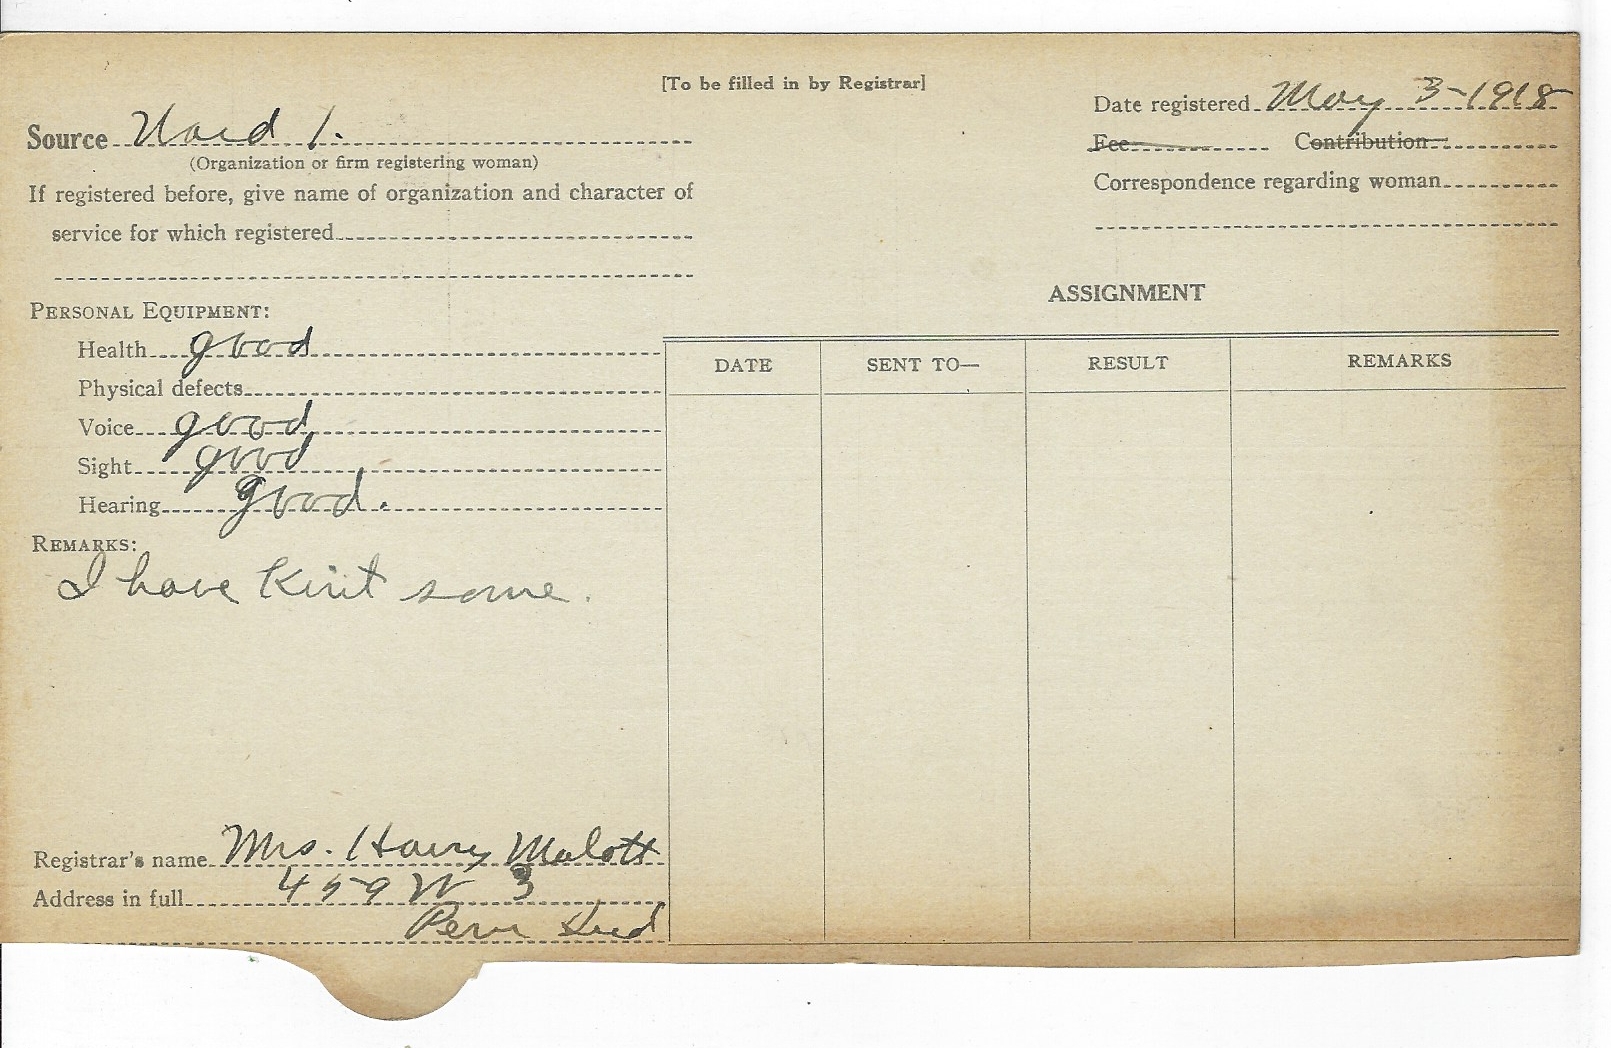 [To be filled in by Registrar]
Date registered May 3-1918
Source Ward 1.
(Organization or firm registering woman)
Fee Contribution
If registered before, give name of organization and character of
service for which registered
Correspondence regarding woman
ASSIGNMENT
PERSONAL EQUIPMENT:
Health good
Physical defects
Voice good
Sight good
Hearing good.
DATE SENT TO— RESULT REMARKS
REMARKS:
I have Knit some.
Registrar's name Mrs. Harry Malott
Address in full 459 W 3
Peru Ind